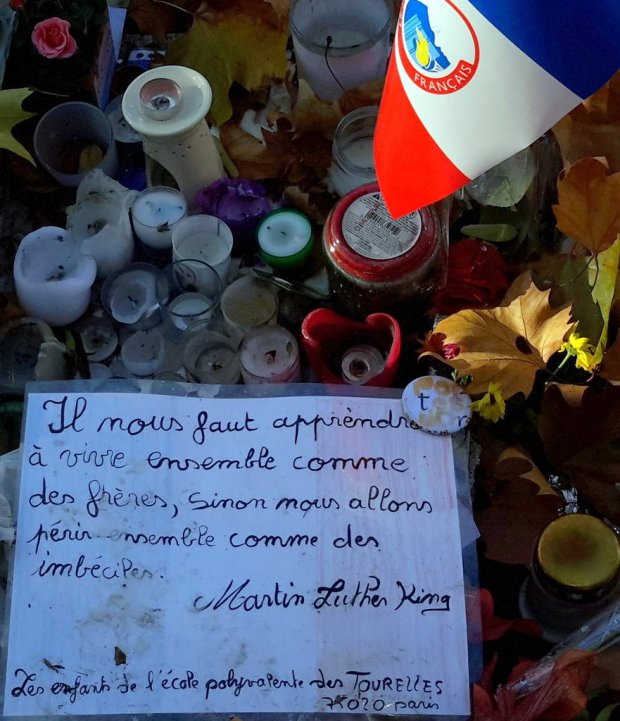 FRANÇAIS
t
Il nous faut apprendre
à vivre ensemble comme
des frères, sinon nous allons
périr ensemble comme des
imbéciles.
Martin Luther King
Les enfants de l'école polyvalente des TOURELLES
75020 paris